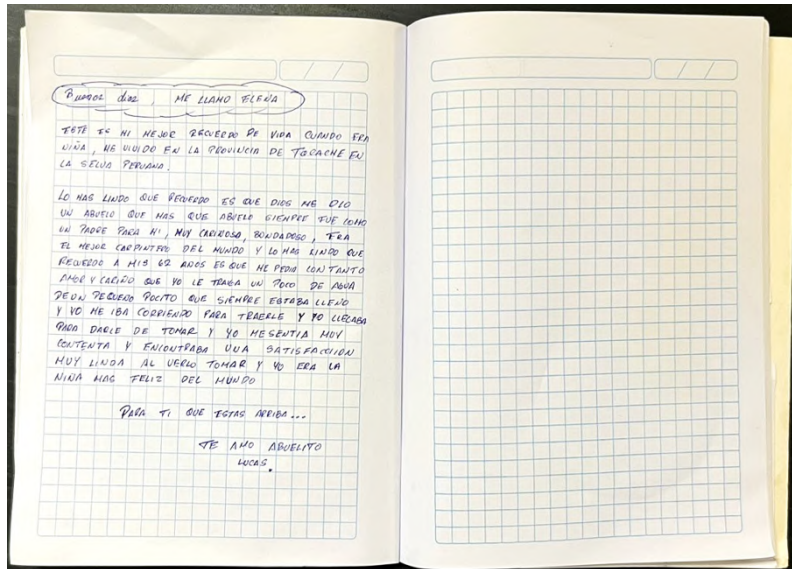 Buenos dias, ME LLAMO ELENA
ESTE ES MI MEJOR RECUERDO DE VIDA CUANDO ERA
NIÑA, HE VIVIDO EN LA PROVINCIA DE TOCACHE EN
LA SELVA PERUANA.
LO MAS LINDO QUE RECUERDO ES QUE DIOS ME DIO
UN ABUELO QUE MAS QUE ABUELO SIEMPRE FUE COMO
UN PADRE PARA MI, MUY CARIÑOSO, BONDADOSO, ERA
EL MEJOR CARPINTERO DEL MUNDO Y LO MAS LINDO QUE
RECUERDO A MIS 62 AÑOS ES QUE ME PEDIA CON TANTO
AMOR Y CARIÑO QUE YO LE TRAIGA UN POCO DE AGUA
DE UN PEQUEÑO POCITO QUE SIEMPRE ESTABA LLENO
Y YO ME IBA CORRIENDO PARA TRAERLE Y YO LLEGABA
PARA DARLE DE TOMAR Y YO ME SENTIA MUY
CONTENTA Y ENCONTRABA UNA SATISFACCION
MUY LINDA AL VERLO TOMAR Y YO ERA LA
NIÑA MAS FELIZ DEL MUNDO
PARA TI QUE ESTAS ARRIBA...
TE AMO ABUELITO
LUCAS.